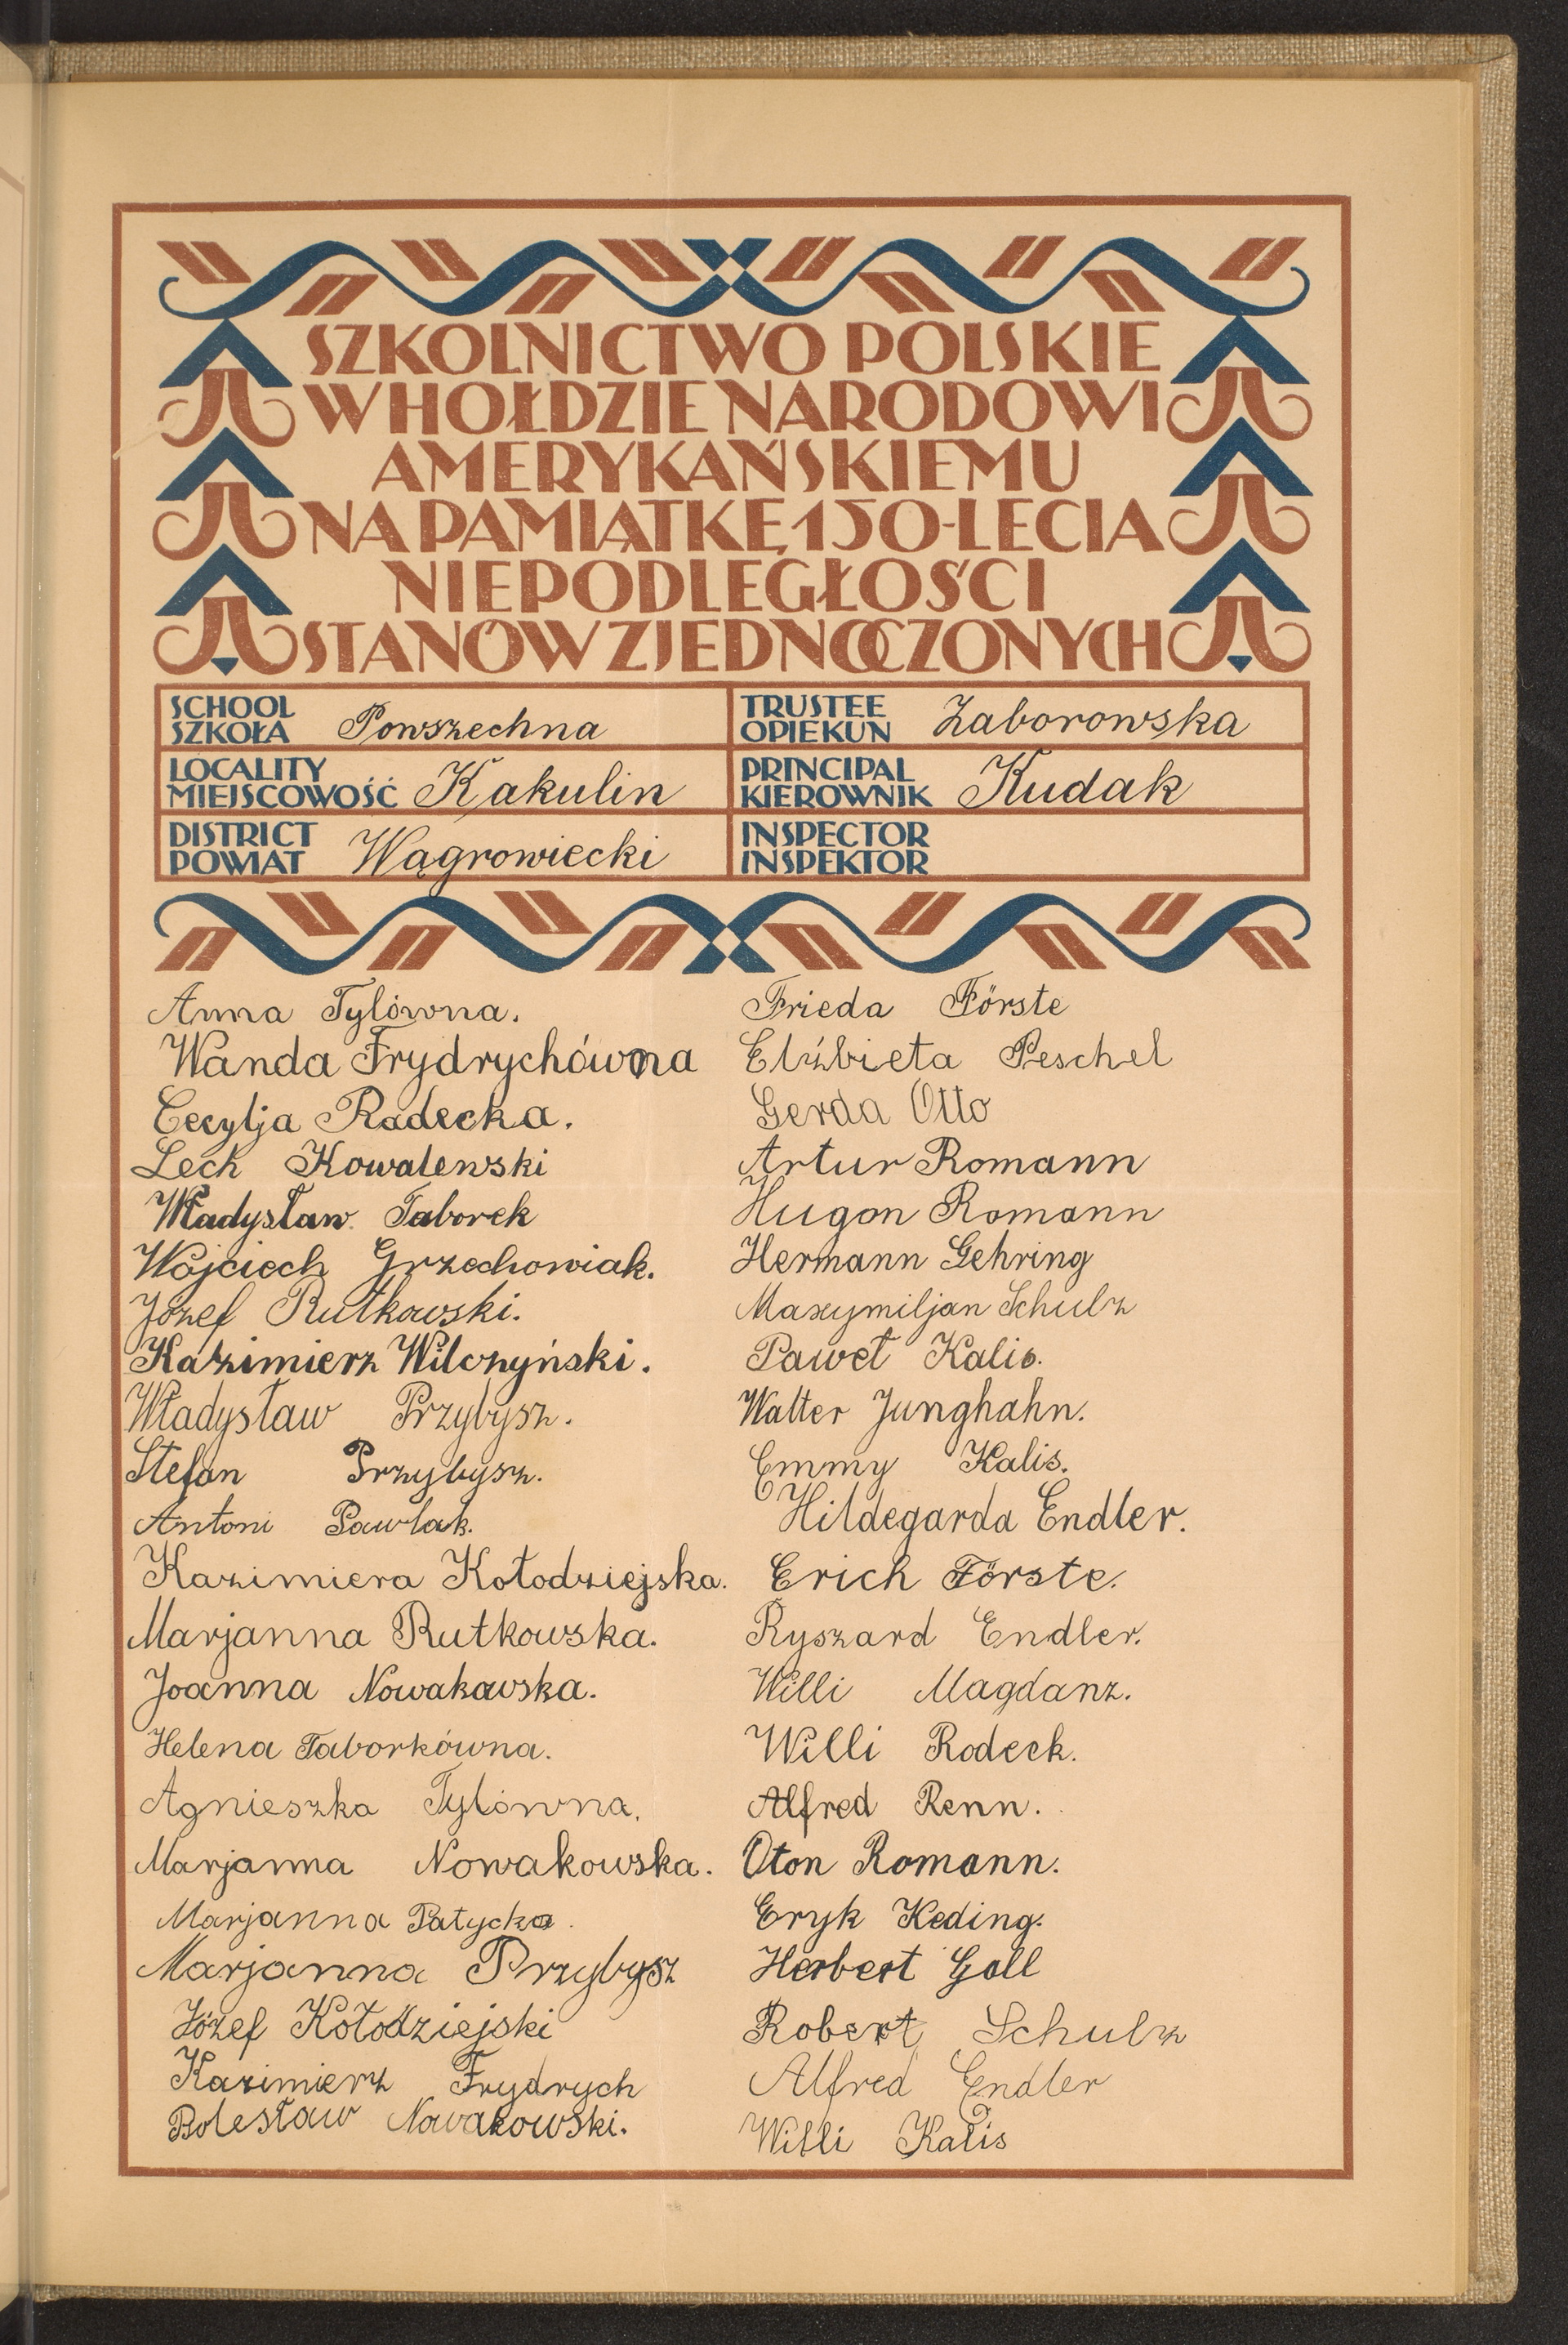 SZKOLNICTWO POLSKIE
W HOŁDZIE NARODOWI
AMERYKAŃSKIEMU
NA PAMIĄTKĘ 150-LECIA
NIEPODLEGŁOŚCI
STANÓW ZJEDNOCZONYCH
SCHOOL
SZKOŁA Powszechna
TRUSTEE
OPIEKUN Zaborowska
LOCALITY
MIEJSCOWOŚĆ Kakulin
PRINCIPAL
KIEROWNIK Kudak
DISTRICT
POWIAT Wągrowiecki
INSPECTOR
INSPEKTOR
Anna Tylówna.
Wanda Frydrychówna
Cecylja Radecka.
Lech Kowalewski
Władysław Taborek
Wojciech Grzechowiak.
Józef Rutkowski.
Kazimierz Wilczyński.
Władysław Przybysz.
Stefan Przybysz.
Antoni Pawlak.
Kazimiera Kołodziejska.
Marjanna Rutkowska.
Joanna Nowakowska.
Helena Taborkówna.
Agnieszka Tylówna.
Marjanna Nowakowska.
Marjanna Patycka.
Marjanna Przybysz
Józef Kołodziejski
Kazimierz Frydrych
Bolesław Nowakowski.
Frieda Förste
Elżbieta Peschel
Gerda Otto
Artur Romann
Hugon Romann
Hermann Gehring
Maxymiljan Schulz
Paweł Kalis.
Walter Junghahn.
Emmy Kalis.
Hildegarda Endler.
Erich Förste.
Ryszard Endler.
Willi Magdanz.
Willi Rodeck.
Alfred Renn.
Oton Romann.
Eryk Keding.
Herbert Goll
Robert Schulz
Alfred Endler
Willi Kalis